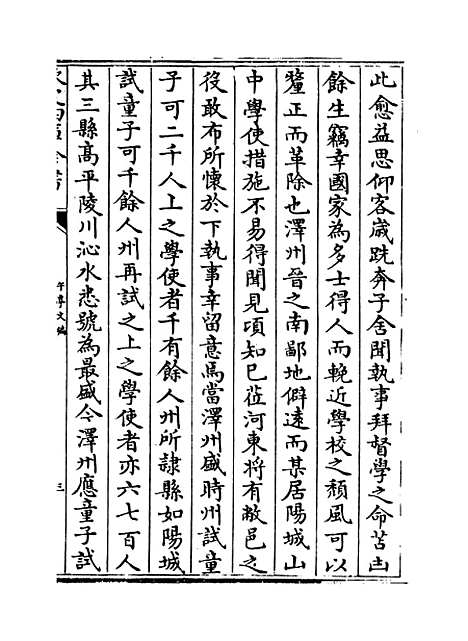 此愈益思仰客歲跣奔子舍聞執事拜督學之命苫凷
餘生竊幸國家為多士得人而輓近學校之頹風可以
釐正而革除也澤州晉之南鄙地僻遠而某居陽城山
中學使措施不易得聞見項知已莅河東将有敝邑之
役敢布所懷於下執事幸留意焉當澤州盛時州試童
子可二千人上之學使者千有餘人州所隷縣如陽城
試童子可千餘人州再試之上之學使者亦六七百人
其三縣髙平陵川沁水悉號為最盛今澤州應童子試
午亭文編
三